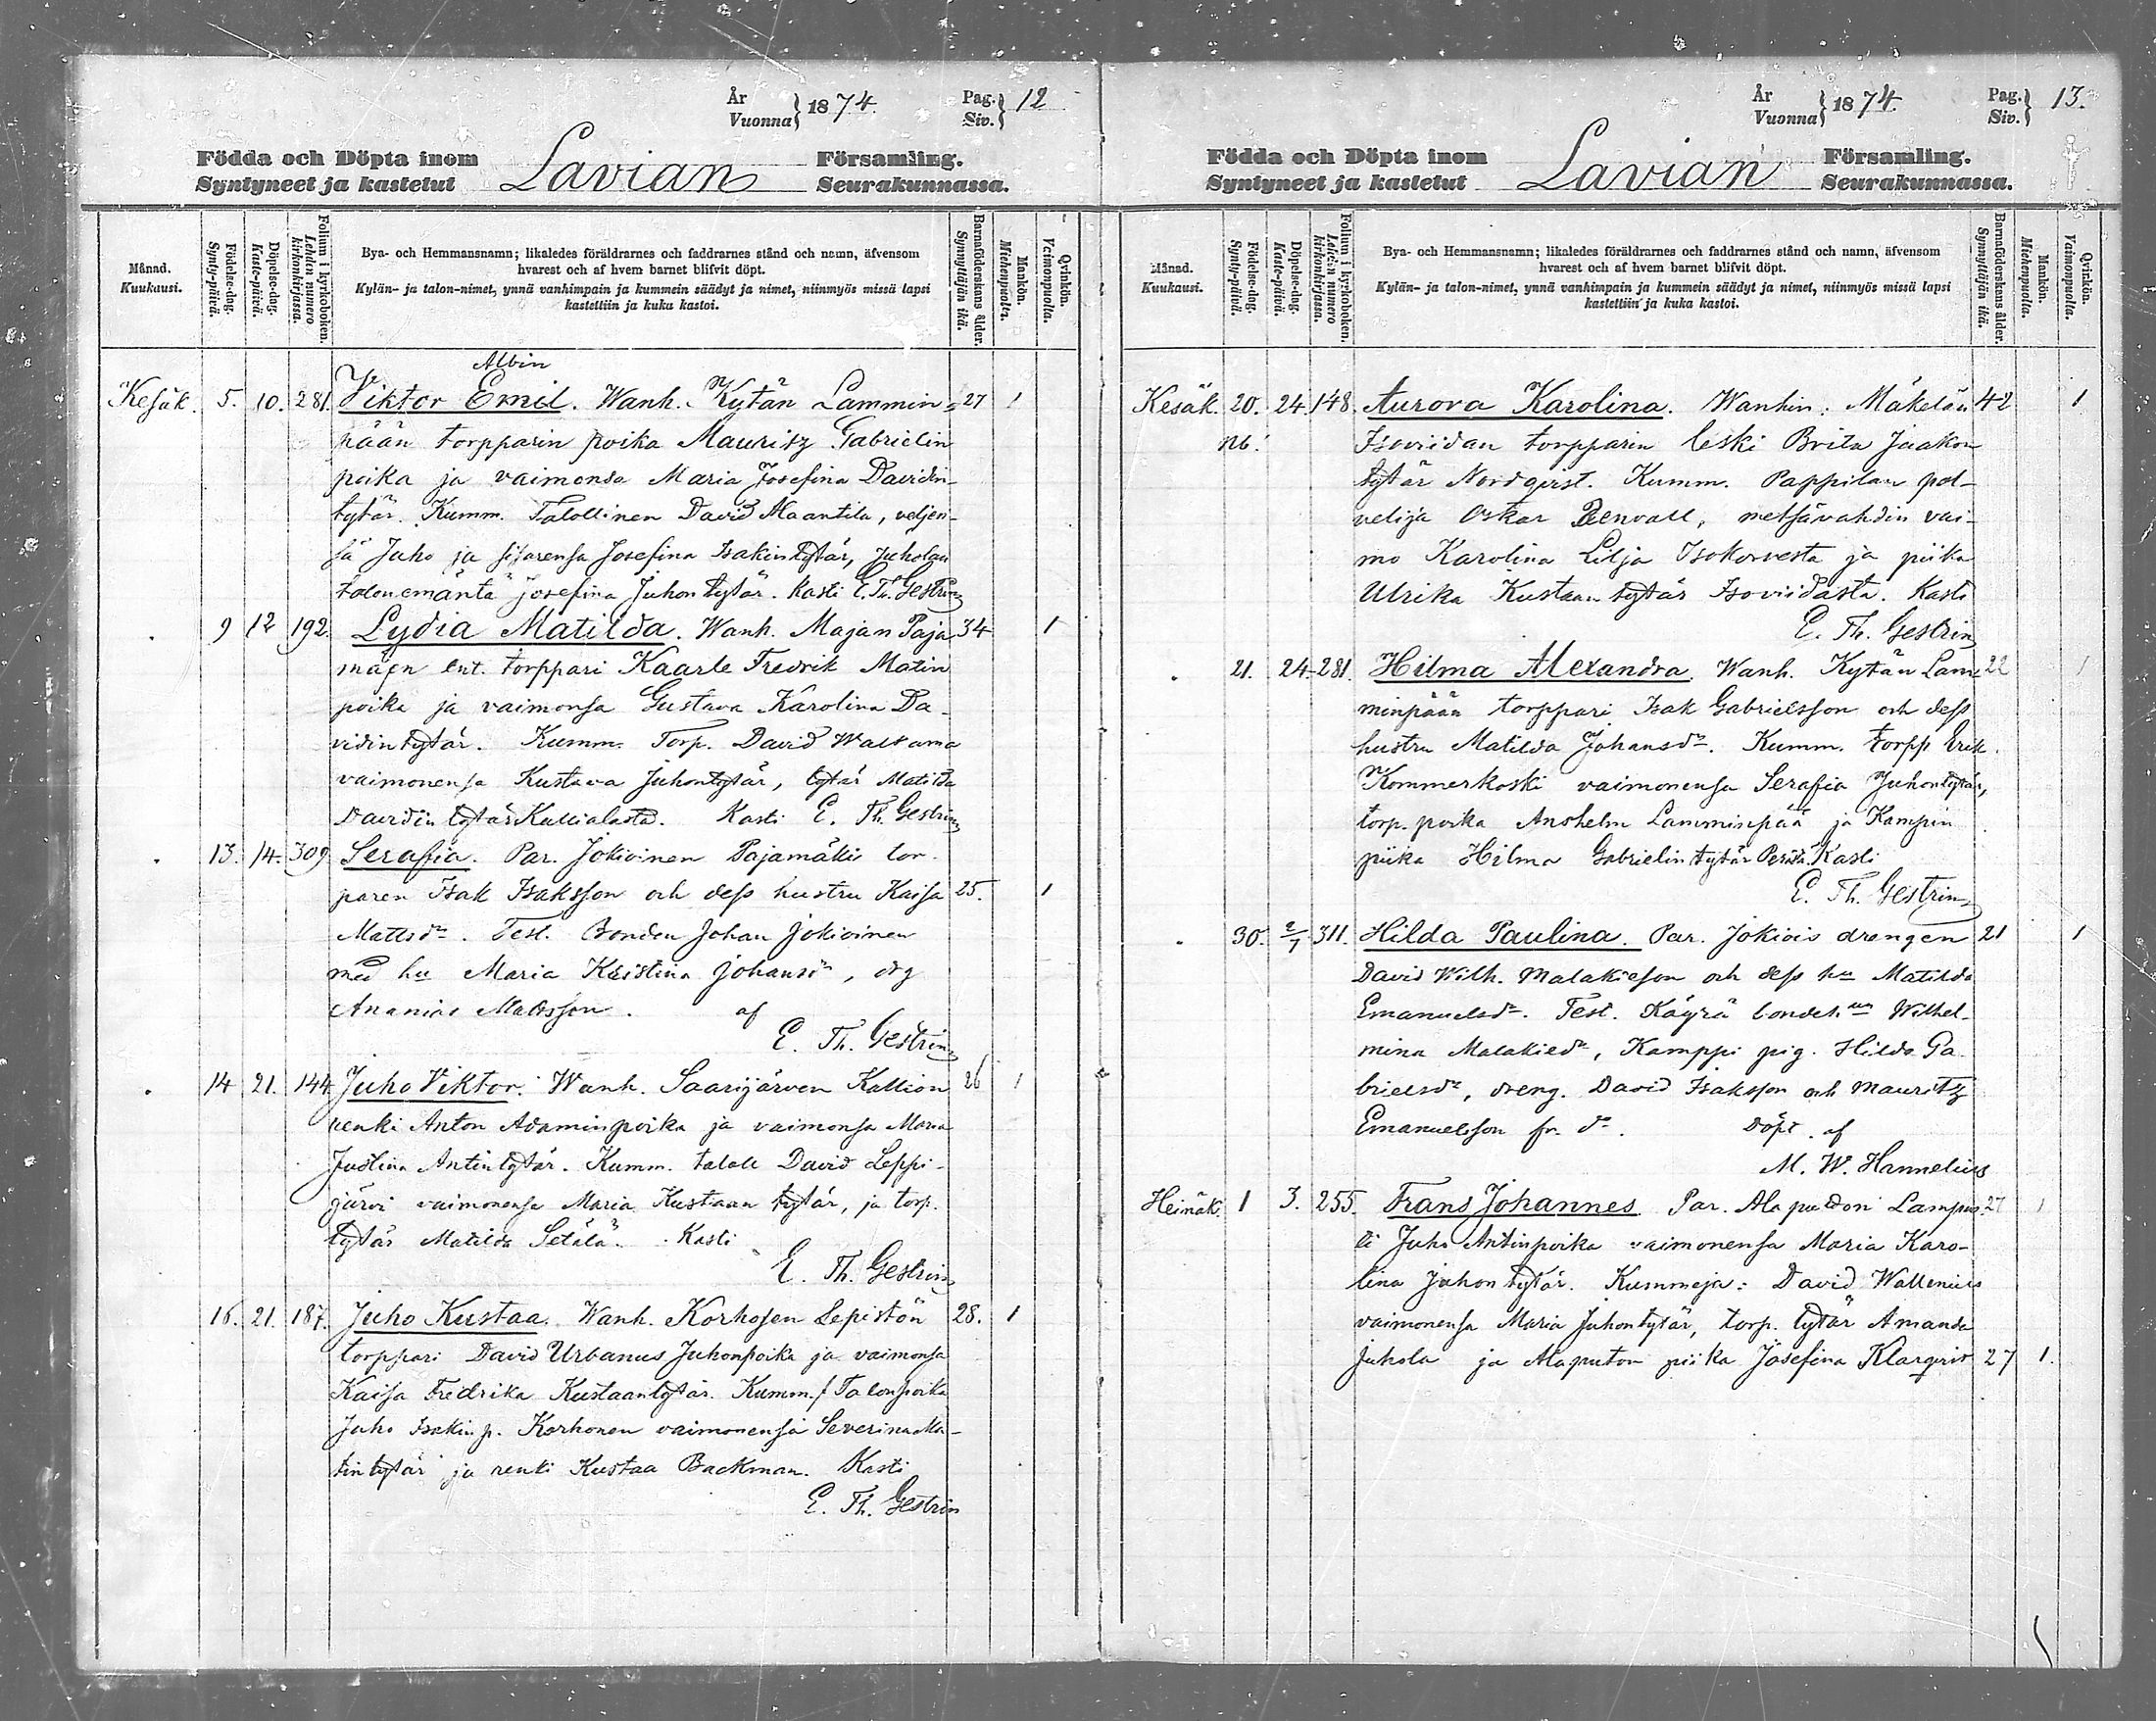 År
Vuonna} 1874. Pag.
Siv.} 12
Födda och Döpta inom Lavian Församling.
Syntyneet ja kastetut Seurakunnassa.
Månad.
Kuukausi.
Födelse-dag.
Synty-päivä.
Döpelse-dag.
Kaste-päivä.
Folium i kyrkoboken.
Lehden numero
kirkonkirjassa.
Bya- och Hemmansnamn; likaledes föräldrarnes och faddrarnes stånd och namn, äfvensom
hvarest och af hvem barnet blifvit döpt.
Kylän- ja talon-nimet, ynnä vanhimpain ja kummein säädyt ja nimet, niinmyös missä lapsi
kastettiin ja kuka kastoi.
Barnaföderskans ålder.
Synnyttäjän ikä.
Mankön.
Miehenpuolta.
Qvinkön.
Vaimonpuolta.
Albin
Kesäk. 5. 10. 281. Viktor Emil. Wanh. Kytän Lammin- 27 1
pään torpparin poika Mauritz Gabrielin
poika ja vaimonsa Maria Josefina Davidin-
tytär. Kumm. Talollinen David Maantila, veljen-
sä Juho ja sisarensa Josefina Isakintytär, Juholan
talonemäntä Josefina Juhontytär. Kasti E. Th. Gestrin
. 9 12 192. Lydia Matilda. Wanh. Majan Paja 34 1
mäen ent. torppari Kaarle Fredrik Matin
poika ja vaimonsa Gustava Karolina Da-
vidintytär. Kumm. Torp. David
vaimonensa Kustava Juhontytär, tytär Matilda
Davidin tytär Kallialasta. Kasti E. Th. Gestrin
. 13. 14. 309 Serafia. Par. Jokioinen Pajamäki tor-
paren Isak Isaksson och dess hustru Kaisa 25. 1
Mattsdr. Test. Bonden Johan Jokioinen
med hu Maria Kristina Johansdr, drg
Ananias Mattsson. af
E. Th. Gestrin
. 14 21. 144 Juho Viktor. Wanh. Saarijärven Kallion 26 1
renki Anton Adaminpoika ja vaimonsa Maria
Justina Antintytär. Kumm. taloll David Leppi-
järvi vaimonensa Maria Kustaan tytär, ja torp.
tytär Matilda Setälä. Kasti
E. Th. Gestrin
16. 21. 187. Juho Kustaa. Wanh. Korhosen Lepistön 28. 1
torppari David Urbanus Juhonpoika ja vaimonsa
Kaisa Fredrika Kustaantytär. Kumm. Talonpoika
Juho Isakin p. Korhonen vaimonensa Severina Ma-
tintytär ja renki Kustaa Backman. Kasti
E. Th. Gestrin
År
Vuonna} 1874. Pag.
Siv.} 13.
Födda och Döpta inom Lavian Församling.
Syntyneet ja kastetut Seurakunnassa.
Månad.
Kuukausi.
Födelse-dag.
Synty-päivä.
Döpelse-dag.
Kaste-päivä.
Folium i kyrkoboken.
Lehden numero
kirkonkirjassa.
Bya- och Hemmansnamn; likaledes föräldrarnes och faddrarnes stånd och namn, äfvensom
hvarest och af hvem barnet blifvit döpt.
Kylän- ja talon-nimet, ynnä vanhimpain ja kummein säädyt ja nimet, niinmyös missä lapsi
kastettiin ja kuka kastoi.
Barnaföderskans ålder.
Synnyttäjän ikä.
Mankön.
Miehenpuolta.
Qvinkön.
Vaimonpuolta.
Kesäk. 20. 24. 148. Aurora Karolina. Wanhin: Mäkelän 42 1
nb! Isoviidan torpparin leski Brita Jaakon
tytär Nordqvist. Kumm. Pappilan pal-
velija Oskar Renvall, metsävahdin vai-
mo Karolina Lilja Isokorvesta ja piika
Ulrika Kustaantytär Isoviidasta. Kasti
E. Th. Gestrin
. 21. 24. 281. Hilma Alexandra. Wanh. Kytän Lam- 22 1
minpään torppari Isak Gabrielsson och dess
hustru Matilda Johansdr. Kumm. torpp Erik
Kommerkoski vaimonensa Serafia Juhontytär,
torp. poika Anshelm Lamminpää ja Kampin
piika Hilma Gabrielintytär Kasti
E. Th. Gestrin
. 30. 2/7 311. Hilda Paulina. Par. Jokiois drengen 21 1
David Wilh. Malakieson och dess hu Matilda
Emanuelsdr. Test. Käyrä bondehun Wilhel-
mina Malakiedr, Kamppi pig. Hilda Ga-
brielsdr, dreng. David Isaksson och Mauritz
Emanuelsson fr. do. Döpt. af
M. W. Hannelius
Heinäk. 1 3. 255. Frans Johannes. Par. Alaputon Lampuo- 27 1
ti Juho Antinpoika vaimonensa Maria Karo-
lina Juhontytär. Kummeja: David Wallenius
vaimonensa Maria Juhontytär, torp. tytär Amanda
Juhola ja Alaputon piika Josefina Klarqvist 27 1.